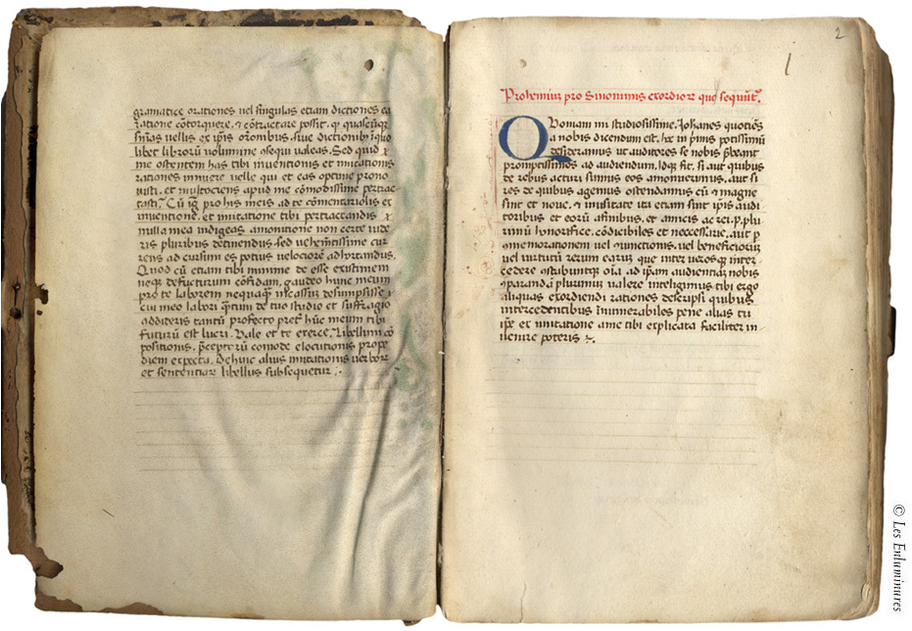 gramatice orationes uel singulas etiam dictiones ca
ratione cōtorquere, & cōtractare possit, ꝙ quascūqꝫ
snīas uellis ex ip̄is orōnibus, siue dictionibꝫ i quo
libet librorū uolumine assequi ualeas. Sed quid
me ostentem has tibi inuentiones et imitationis
rationes inuiere uelle qui et eas optime prono
uisti, et multociens apud me cōmodissime pertrac
tasti? Cū igr̄ pro his meis ad te cōmentariolis ex
inuentione, et imitatione tibi pertractandis
nulla mea indigeas amonitione non certe uide
ris pluribus detinendus, sed uehemētissime cur
rens ad cursum es potius uelociorē adhortandus.
Quod cū etiam tibi minime de esse existimem
neqꝫ defucturum cōfidam, gaudeo hunc meum
pro te laborem nequaꝙ̄ incassuꝫ desumpsisse
cui meo labori q̄ntum de tuo studio et suffragio
addideris tantū profecto preter hūc meum tibi
futurū est lucri. Vale et te exerce. Libellum cō
positionis, p̄ceptorū comode elocutionis prope
diem expecta. Dehinc alius imitationis uerborꝫ
et sententiarꝫ libellus subsequetur
2
1
Prohemiuꝫ pro Sinonimis exordiorꝫ que sequūtr̄.
Quoniam mi studiosissime Johanes quotiēs
a nobis dicendum est, hec in p̄mis potissimū
desideramus ut auditores se nobis p̄beant
promptissimos ad audiendum. Idqꝫ fit, si aut quibus
de rebus acturi simus eos amonuerimus, aut si
res de quibus agemus ostendamus cū & magne
sint et noue, & inusitate uti etiam sint ip̄is audi
toribus et eorū affinibus, et amicis ac rei .p. plu
rimū honorifice, cōdicibiles et neccessarie, aut p̄
cōmemorationem uel cōiunctionis, uel beneficiorꝫ
uel uirtutū rerum earuꝫ que inter uerosqꝫ inter
cedere ostabuntur oīa ad ip̄am audientiaꝫ nobis
cōparandā plurimum ualere inteligimus tibi ergo
aliquas exordiendi rationes descripsi quibus
intercedentibus inumerabiles pene alias tu
ip̄e ex imitatione ame tibi explicata faciliter in
uenire poteris
© Les Enluminures